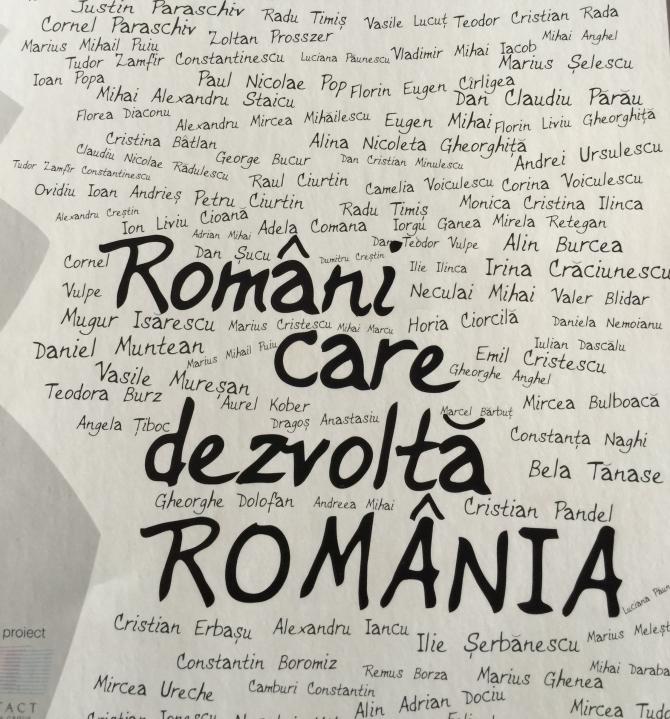 Justin Paraschiv Radu Timiș Vasile Lucuț Teodor Cristian Rada
Cornel Paraschiv Zoltan Prosszer Mihai Anghel
Marius Mihail Puiu Luciana Păunescu Vladimir Mihai Iacob
Tudor Zamfir Constantinescu Marius Șelescu
Ioan Popa Paul Nicolae Pop Florin Eugen Cîrligea
Mihai Alexandru Staicu Dan Claudiu Părău
Florea Diaconu Alexandru Mircea Mihăilescu Eugen Mihai Florin Liviu Gheorghiță
Cristina Bătlan Alina Nicoleta Gheorghiță
Claudiu Nicolae Rădulescu George Bucur Dan Cristian Minulescu Andrei Ursulescu
Tudor Zamfir Constantinescu Raul Ciurtin Camelia Voiculescu Corina Voiculescu
Ovidiu Ioan Andrieș Petru Ciurtin Radu Timiș Monica Cristina Ilinca
Alexandru Creștin Ion Liviu Cioană Adrian Mihai Adela Comana Iorgu Ganea Mirela Retegan
Dan Șucu Dumitru Creștin Dan Teodor Vulpe Alin Burcea
Cornel Vulpe Ilie Ilinca Irina Crăciunescu
Români
Neculai Mihai Valer Blidar
Mugur Isărescu Marius Cristescu Mihai Marcu Horia Ciorcilă Daniela Nemoianu
Daniel Muntean Marius Mihail Puiu Emil Cristescu Iulian Dascălu
care
Vasile Mureșan Gheorghe Anghel
Teodora Burz Aurel Kober Marcel Bărbuț Mircea Bulboacă
Angela Țiboc Dragoș Anastasiu Constanța Naghi
dezvoltă
Bela Tănase
Gheorghe Dolofan Andreea Mihai Cristian Pandel
ROMÂNIA
Luciana
Cristian Erbașu Alexandru Iancu Ilie Șerbănescu Marius
proiect
Constantin Boromiz Remus Borza Marius Ghenea Mihai
Mircea Ureche Camburi Constantin Alin Adrian Dociu Mircea